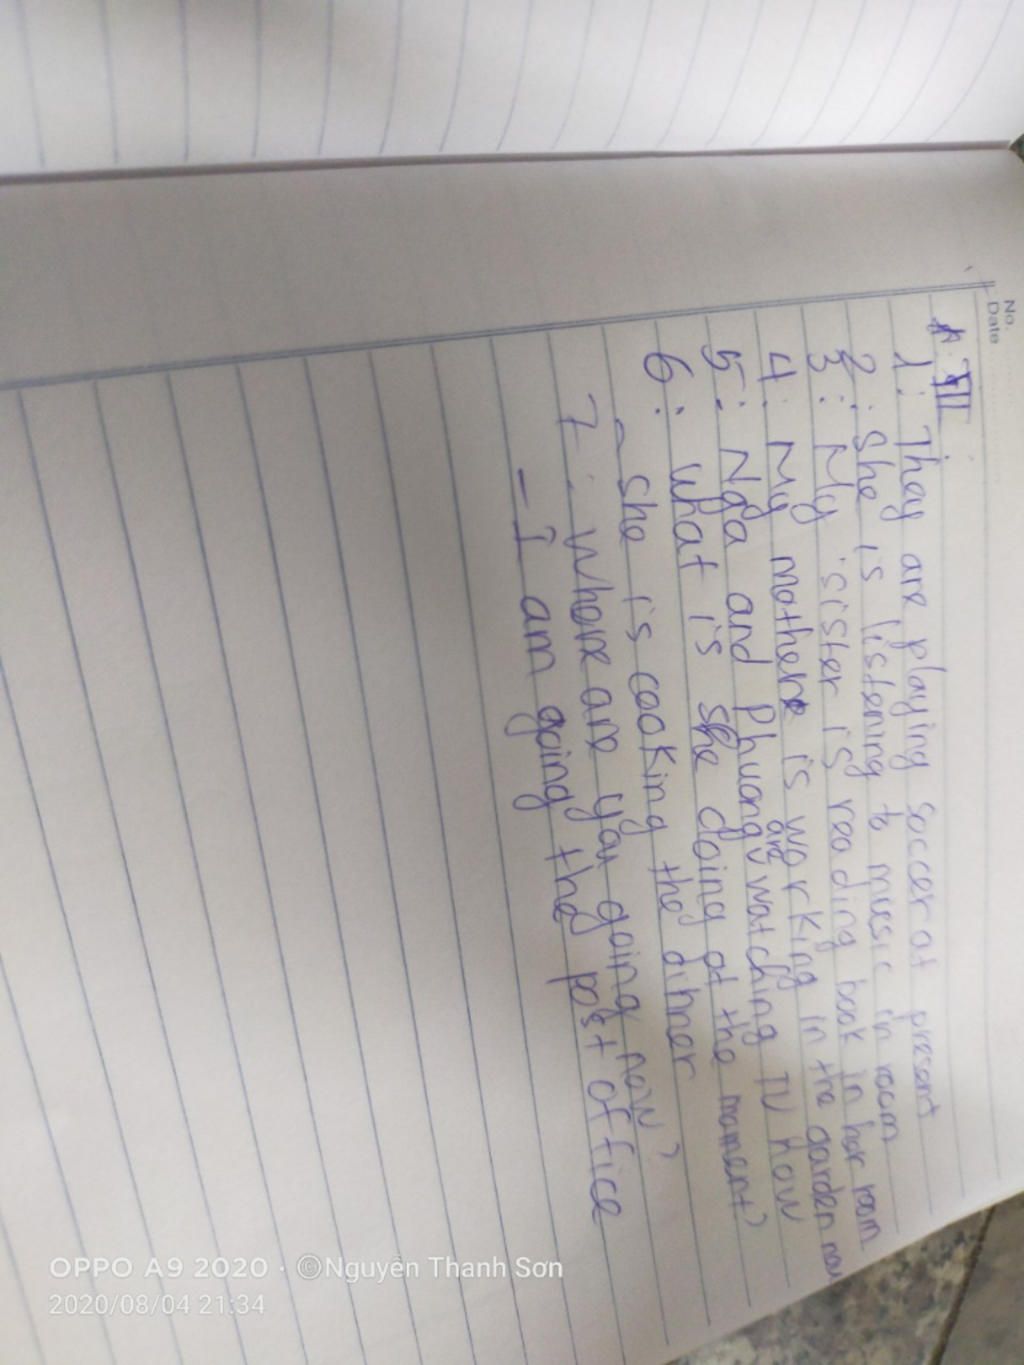 No.
Date
* III
1: They are playing soccer at present
2: She is listening to music in room
3: My sister is reading book in her room
4: My mother is working in the garden now
5: Nga and Phuong are watching TV now
6: What is she doing at the moment?
- She is cooking the dinner
7: Where are you going now?
- I am going the post office
OPPO A9 2020 · ©Nguyễn Thanh Sơn
2020/08/04 21:34